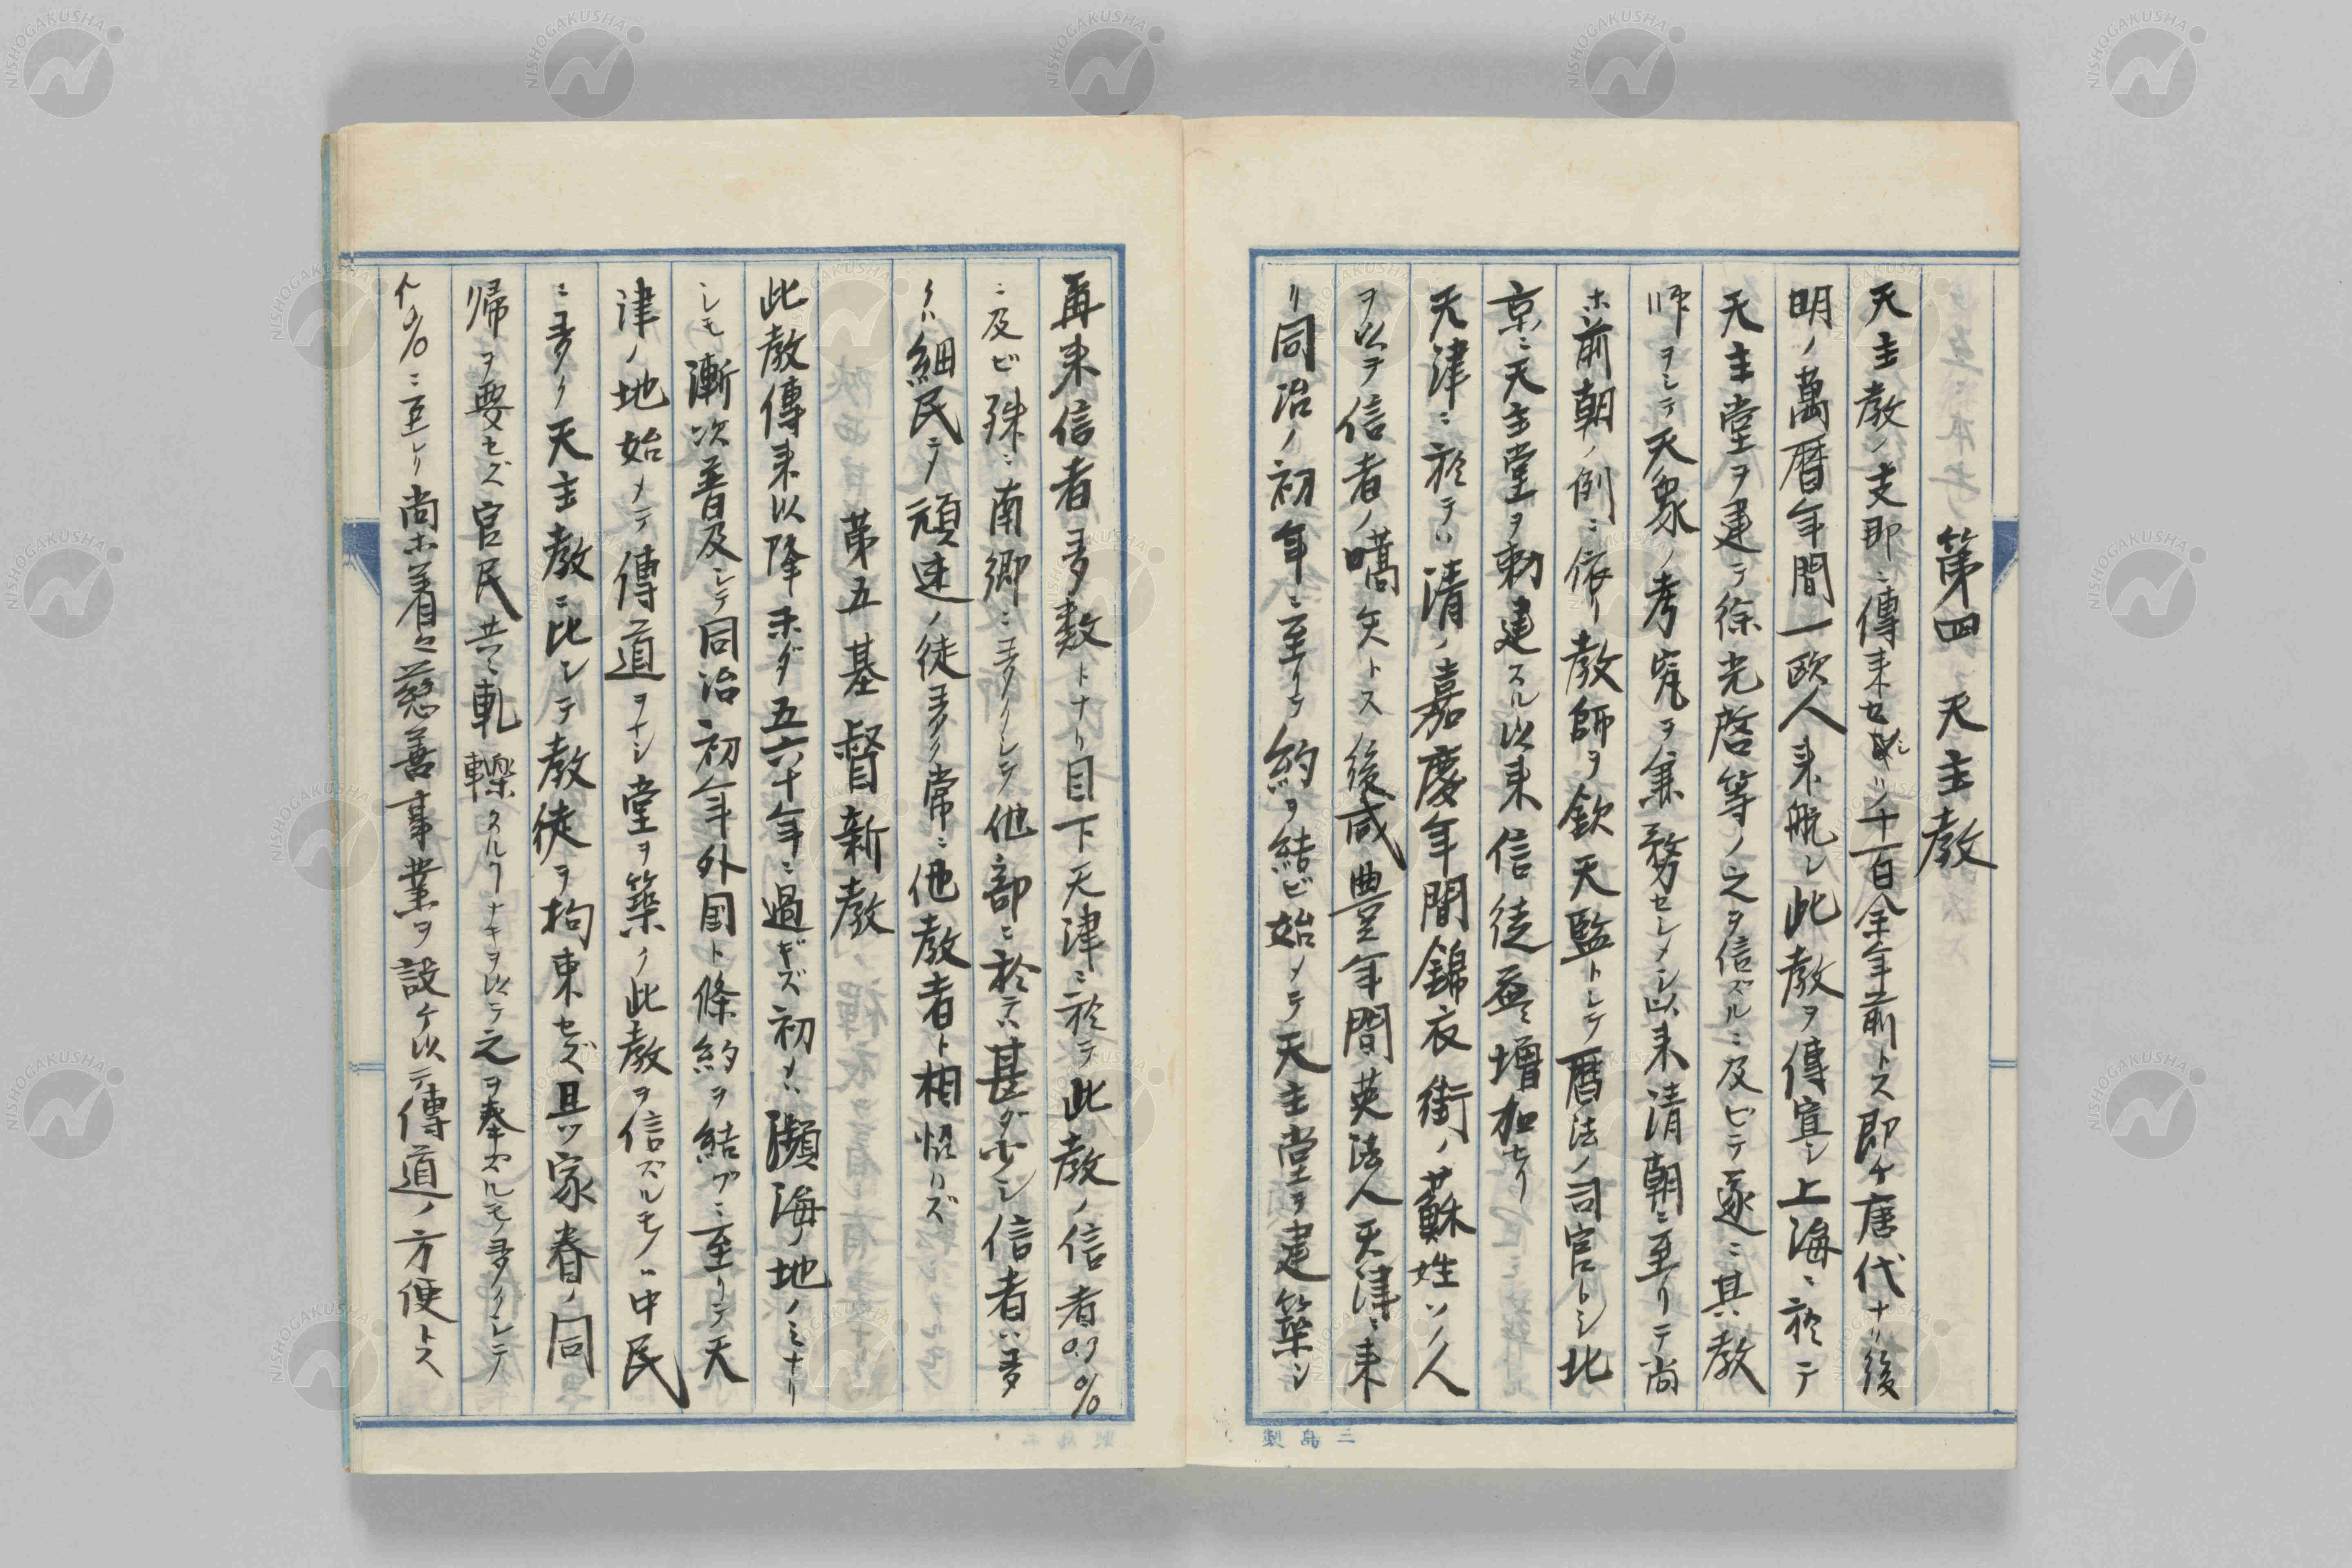 第四 天主教
天主教ノ支那ニ傳来セシハ千百余年前トス即チ唐代ナリ後
明ノ萬暦年間一欧人来航シ此教ヲ傳宣シ上海ニ於テ
天主堂ヲ建テ徐光啓等ノ之ヲ信ズルニ及ビテ遂ニ其教
師ヲシテ天象ノ考究ヲ兼務セシメシ以来清朝ニ至リテ尚
ホ前朝ノ例ニ依リ教師ヲ欽天監トシテ暦法ノ司官トシ北
京ニ天主堂ヲ勅建スル以来信徒益々増加セリ
天津ニ於テハ清ノ嘉慶年間錦衣衛ノ蘇姓ソノ人
ヲ以テ信者ノ嚆矢トス後咸豊年間英法人天津ニ来
リ同治ノ初年ニ至リテ約ヲ結ビ始メテ天主堂ヲ建築シ
再来信者多数トナリ目下天津ニ於テ此教ノ信者0.7%
ニ及ビ殊ニ南郷ニ多クシテ他部ニ於テハ甚ダ少シ信者ハ多
クハ細民ニテ頑迷ノ徒多ク常ニ他教者ト相協ハズ
第五 基督新教
此教傳来以降未ダ五六十年ニ過ギズ初メハ瀕海ノ地ノミナリ
シモ漸次普及シテ同治初年外国ト條約ヲ結ブニ至リテ天
津ノ地始メテ傳道ヲナシ堂ヲ築ク此教ヲ信ズルモノハ中民
ニ多ク天主教ニ比シテ教徒ヲ拘束セズ且ツ家眷ノ同
帰ヲ要セズ官民共ニ軋轢スルヿナキヲ以テ之ヲ奉ズルモノ多クシテ
%ニ至レリ尚ホ着々慈善事業ヲ設ケ以テ傳道ノ方便トス
三島製
NISHOGAKUSHA